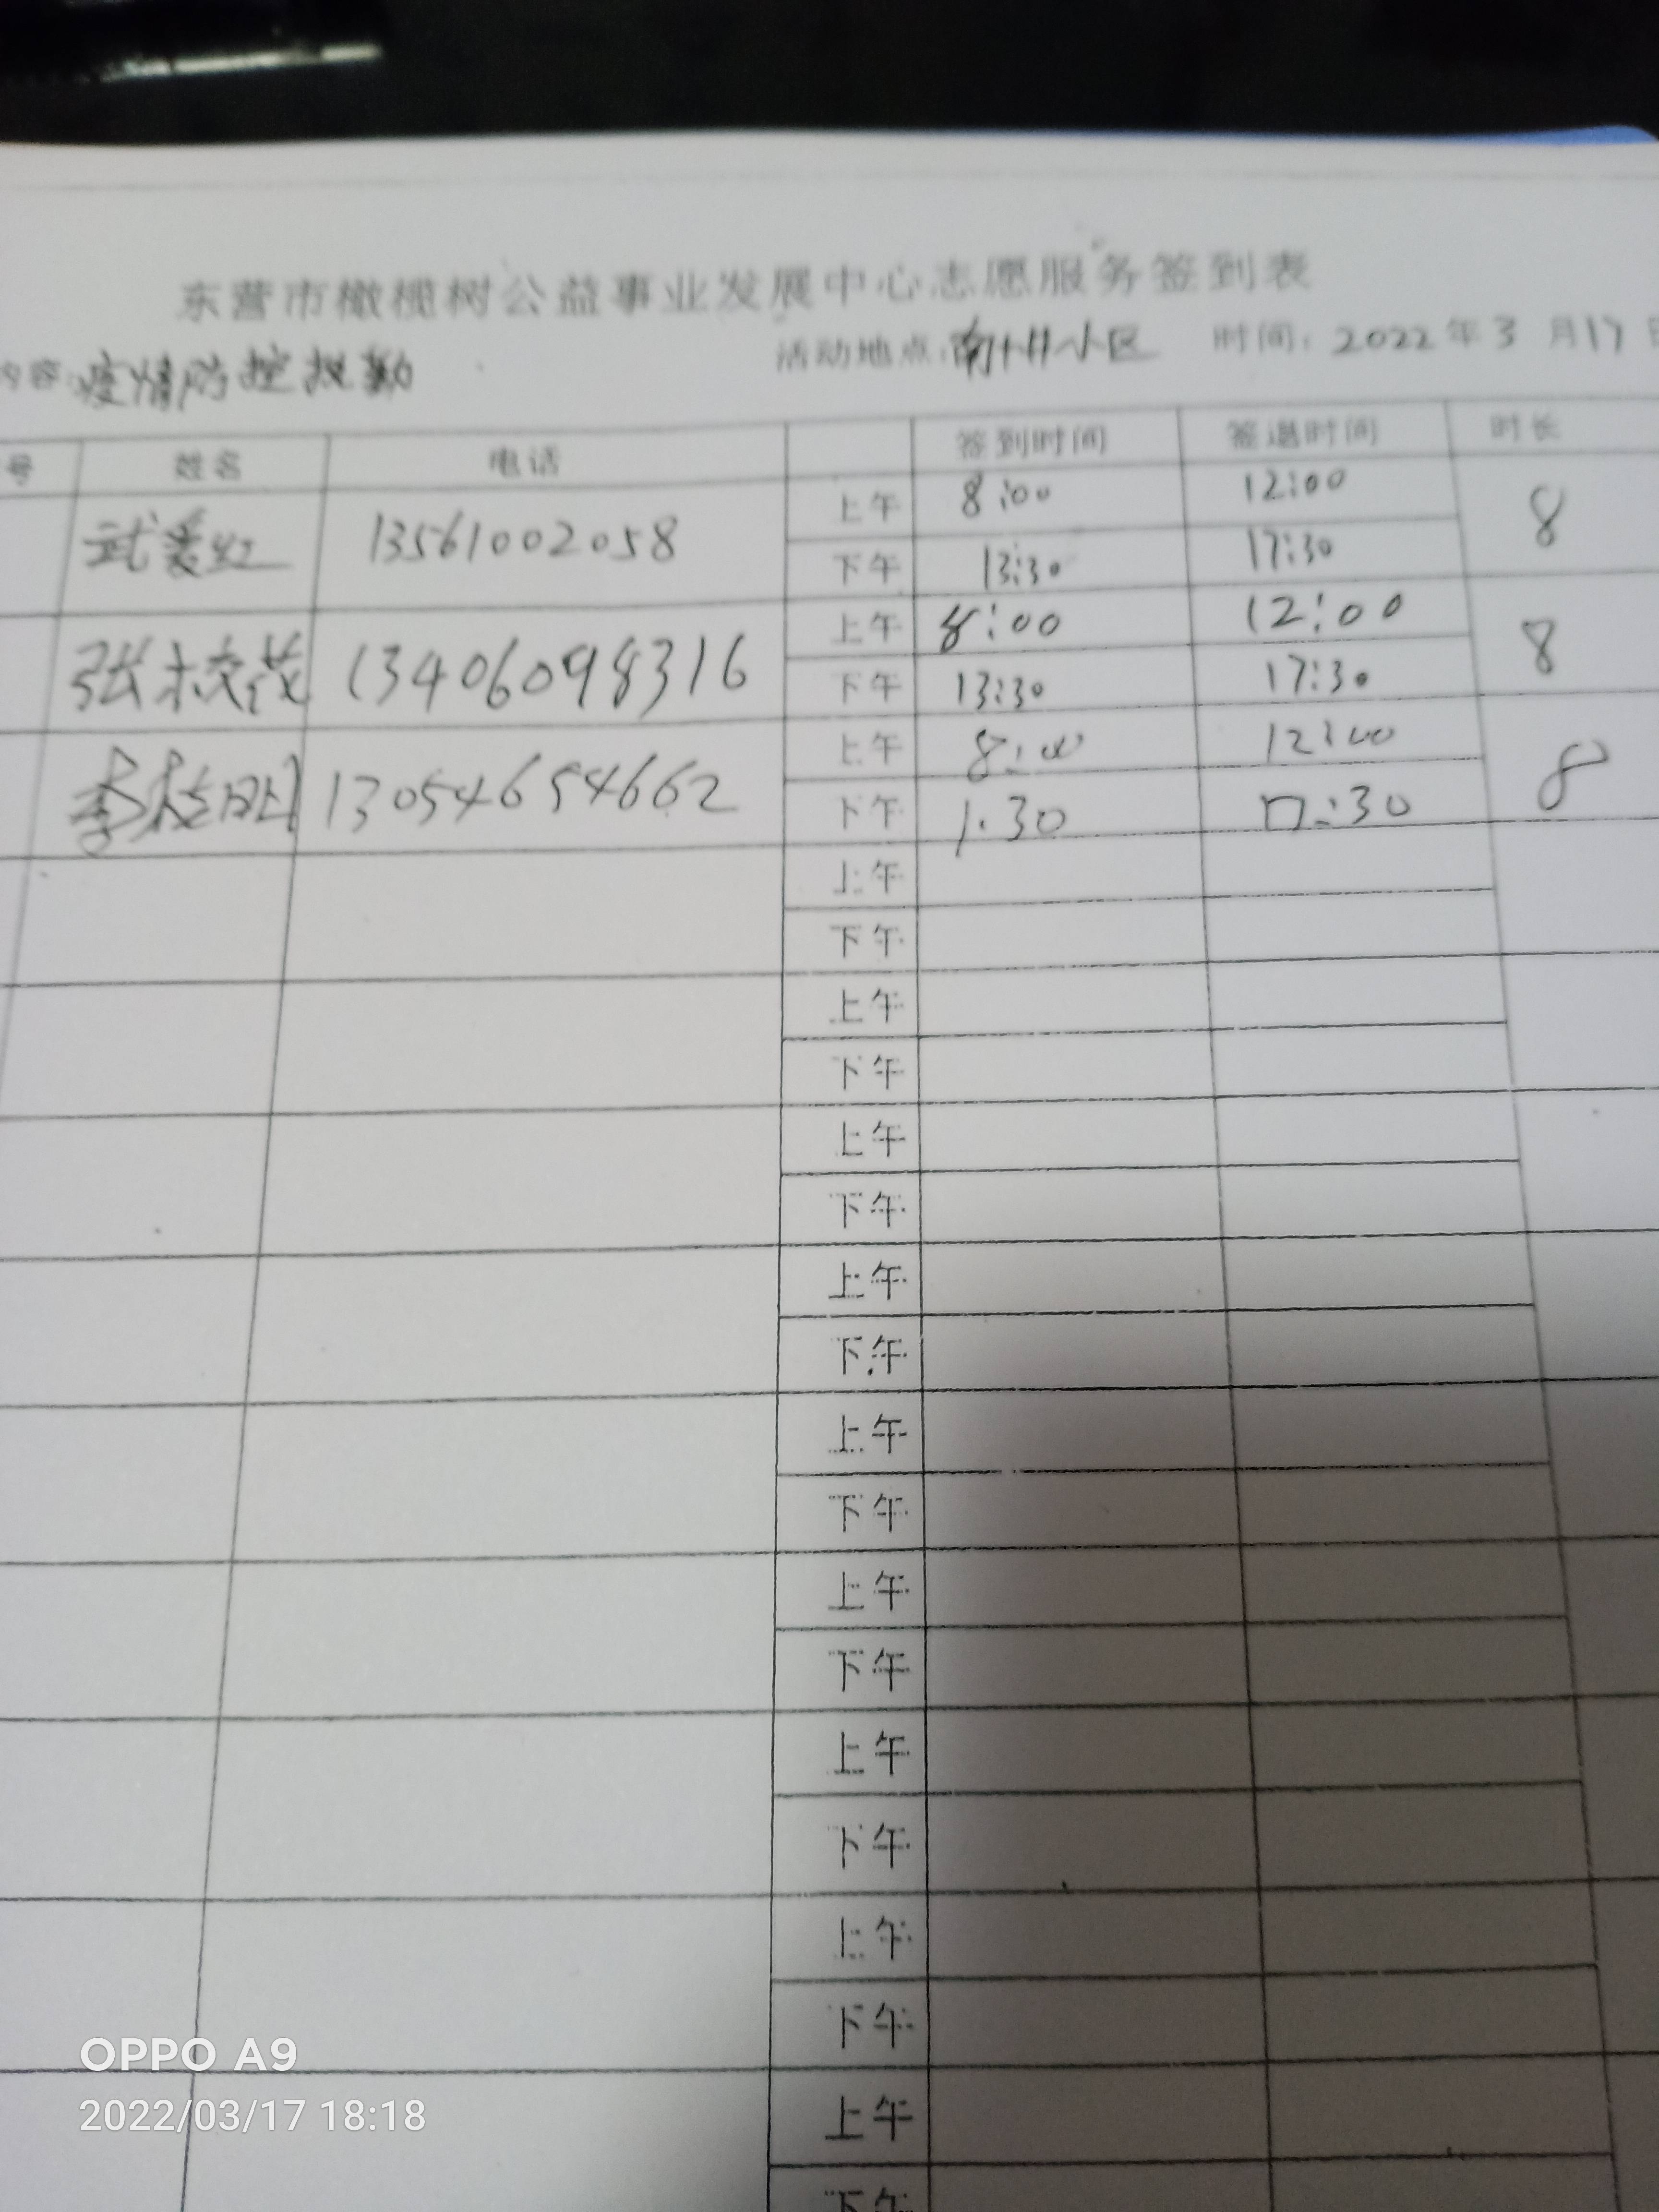 东营市橄榄树公益事业发展中心志愿服务签到表
内容:疫情防控执勤 活动地点:南小区 时间:2022年3月17日
号 姓名 电话 签到时间 签退时间 时长
武美红 13561002058 上午 8:00 12:00 8
下午 13:30 17:30
张 13406098316 上午 8:00 12:00 8
下午 13:30 17:30
李 13054654662 上午 8:00 12:00 8
下午 1.30 17:30
上午
下午
上午
下午
上午
下午
上午
下午
上午
下午
上午
下午
上午
下午
上午
下午
上午
下午
OPPO A9
2022/03/17 18:18